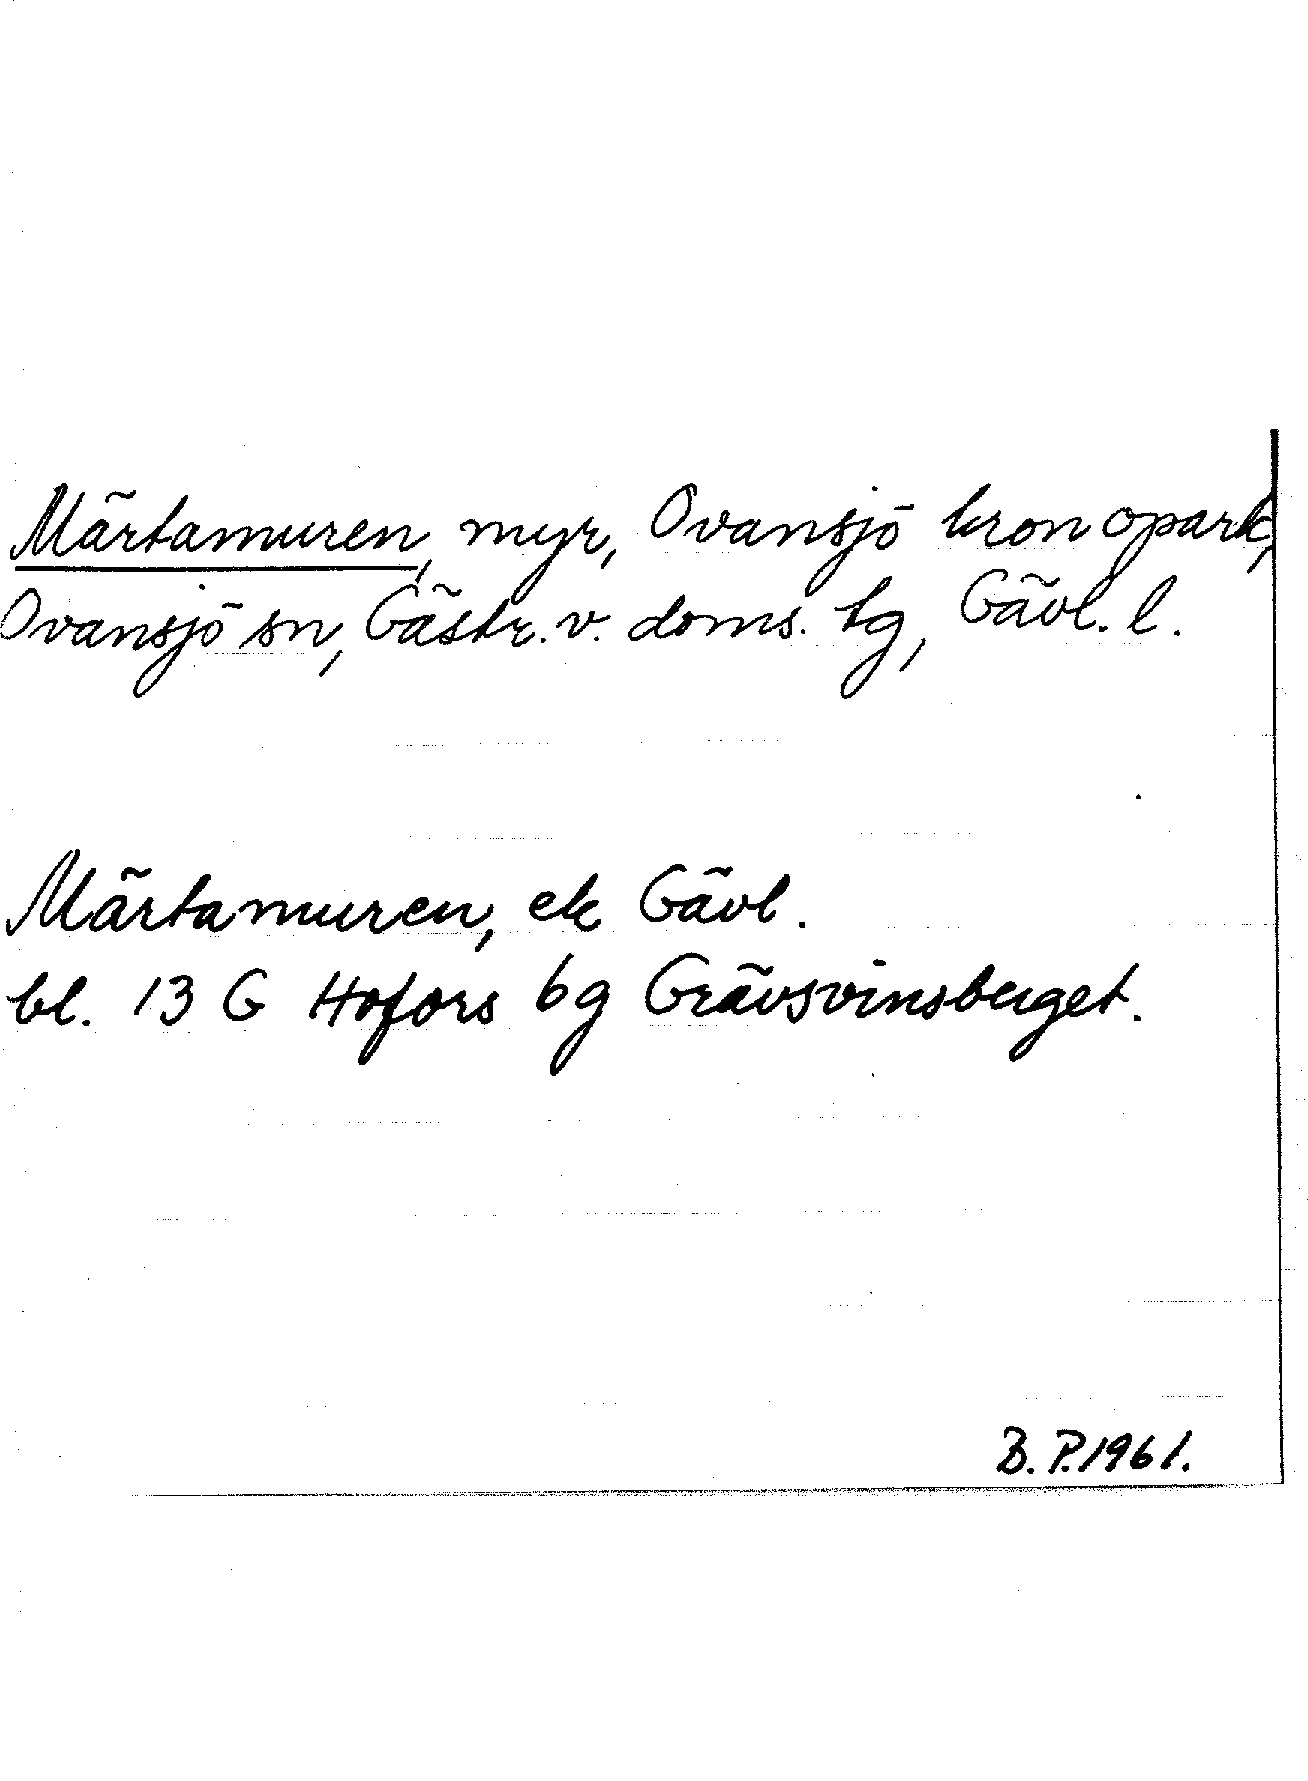 Märtamuren, myr, Ovansjö kronopark,
Ovansjö sn, Gästr. v. doms. tg, Gävl. l.
Märtamuren, ek Gävl.
bl. 13 G Hofors 6g Grävsvinsberget.
B. P. 1961.